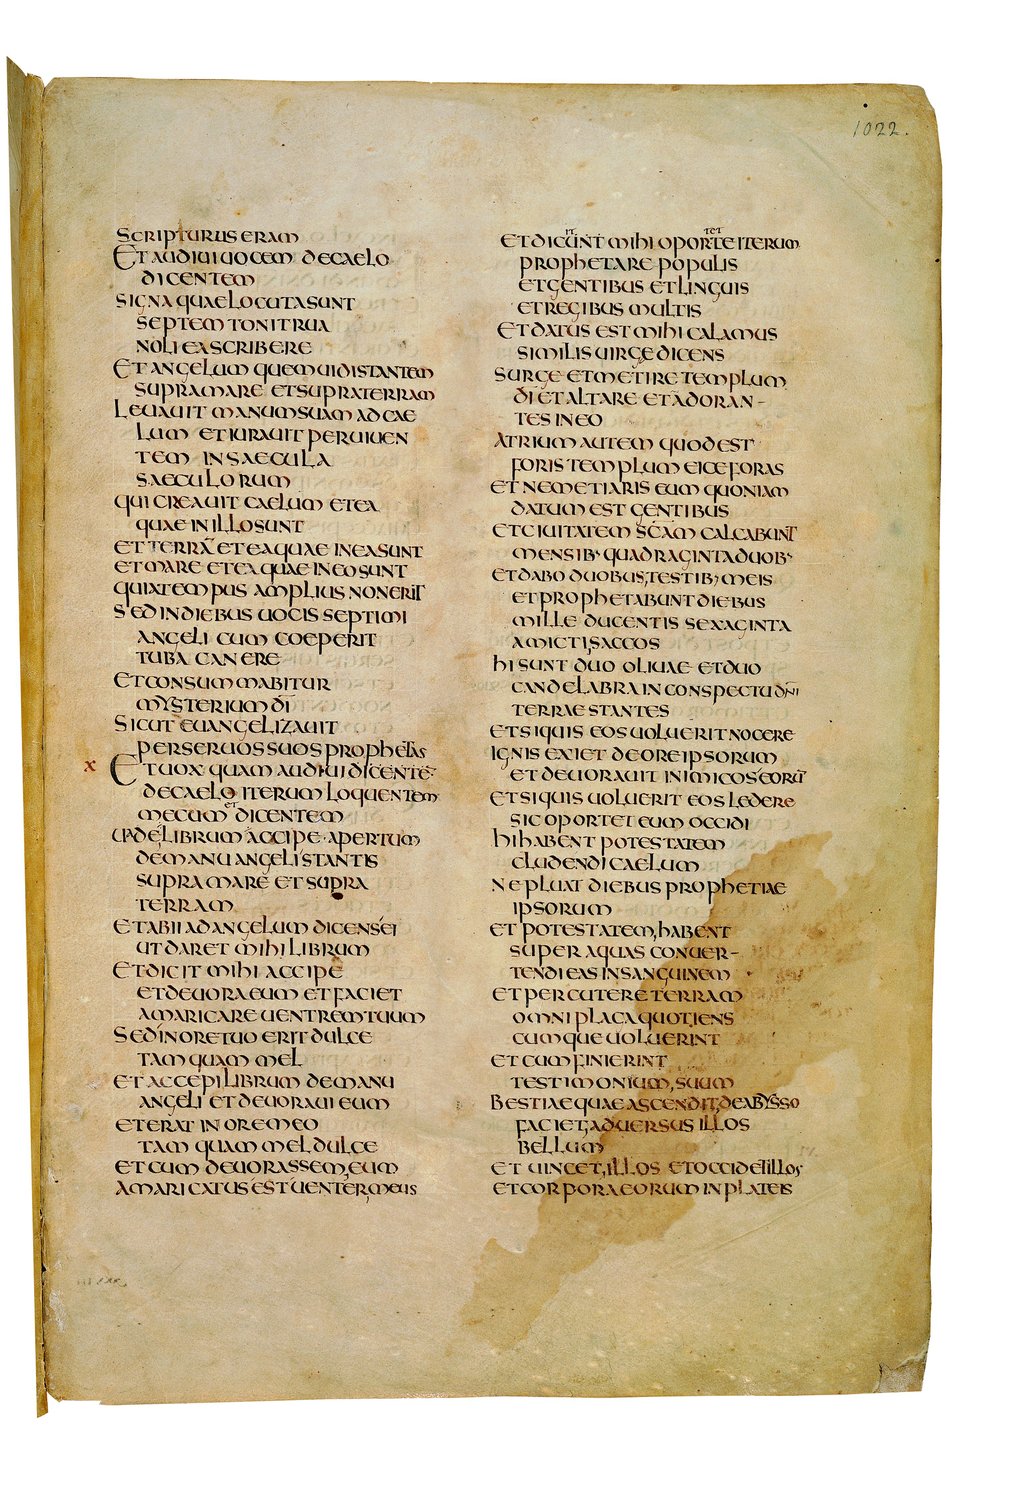 1022.
SCRIPTURUS ERAM
ET AUDIUI UOCEM DE CAELO
DICENTEM
SIGNA QUAE LOCUTA SUNT
SEPTEM TONITRUA
NOLI EA SCRIBERE
ET ANGELUM QUEM UIDI STANTEM
SUPRA MARE ET SUPRA TERRAM
LEUAUIT MANUM SUAM AD CAE
LUM ET IURAUIT PER UIUEN
TEM IN SAECULA
SAECULORUM
QUI CREAUIT CAELUM ET EA
QUAE IN ILLO SUNT
ET TERRĀ ET EA QUAE IN EA SUNT
ET MARE ET EA QUAE IN EO SUNT
QUIA TEMPUS AMPLIUS NON ERIT
SED IN DIEBUS UOCIS SEPTIMI
ANGELI CUM COEPERIT
TUBA CANERE
ET CONSUMMABITUR
MYSTERIUM DĪ
SICUT EUANGELIZAUIT
PER SERUOS SUOS PROPHETAS
X
ET UOX QUAM AUDIUI DICENTĒ
DE CAELO ITERUM LOQUENTEM
MECUM ET DICENTEM
UADE LIBRUM ACCIPE APERTUM
DE MANU ANGELI STANTIS
SUPRA MARE ET SUPRA
TERRAM
ET ABII AD ANGELUM DICENS EI
UT DARET MIHI LIBRUM
ET DICIT MIHI ACCIPE
ET DEUORA EUM ET FACIET
AMARICARE UENTREM TUUM
SED IN ORE TUO ERIT DULCE
TAMQUAM MEL
ET ACCEPI LIBRUM DE MANU
ANGELI ET DEUORAUI EUM
ET ERAT IN ORE MEO
TAMQUAM MEL DULCE
ET CUM DEUORASSEM EUM
AMARICATUS EST UENTER MEUS
ET DICUNT MIHI OPORTE ITERUM
PROPHETARE POPULIS
ET GENTIBUS ET LINGUIS
ET REGIBUS MULTIS
ET DATUS EST MIHI CALAMUS
SIMILIS UIRGE DICENS
SURGE ET METIRE TEMPLUM
DĪ ET ALTARE ET ADORAN-
TES IN EO
ATRIUM AUTEM QUOD EST
FORIS TEMPLUM EICE FORAS
ET NE METIARIS EUM QUONIAM
DATUM EST GENTIBUS
ET CIUITATEM SC̄AM CALCABUNT
MENSIB· QUADRAGINTA DUOB·
ET DABO DUOBUS TESTIB; MEIS
ET PROPHETABUNT DIEBUS
MILLE DUCENTIS SEXAGINTA
AMICTI SACCOS
HI SUNT DUO OLIUAE ET DUO
CANDELABRA IN CONSPECTU DN̄I
TERRAE STANTES
ET SI QUIS EOS UOLUERIT NOCERE
IGNIS EXIET DE ORE IPSORUM
ET DEUORAUIT INIMICOS EORŪ
ET SI QUIS UOLUERIT EOS LEDERE
SIC OPORTET EUM OCCIDI
HI HABENT POTESTATEM
CLUDENDI CAELUM
NE PLUAT DIEBUS PROPHETIAE
IPSORUM
ET POTESTATEM HABENT
SUPER AQUAS CONUER-
TENDI EAS IN SANGUINEM
ET PERCUTERE TERRAM
OMNI PLAGA QUOTIENS
CUMQUE UOLUERINT
ET CUM FINIERINT
TESTIMONIUM SUUM
BESTIAE QUAE ASCENDIT DE ABYSSO
FACIET ADUERSUS ILLOS
BELLUM
ET UINCET ILLOS ET OCCIDET ILLOS
ET CORPORA EORUM IN PLATEIS